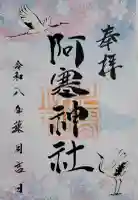 奉拝
阿寒神社
令和八年月吉日